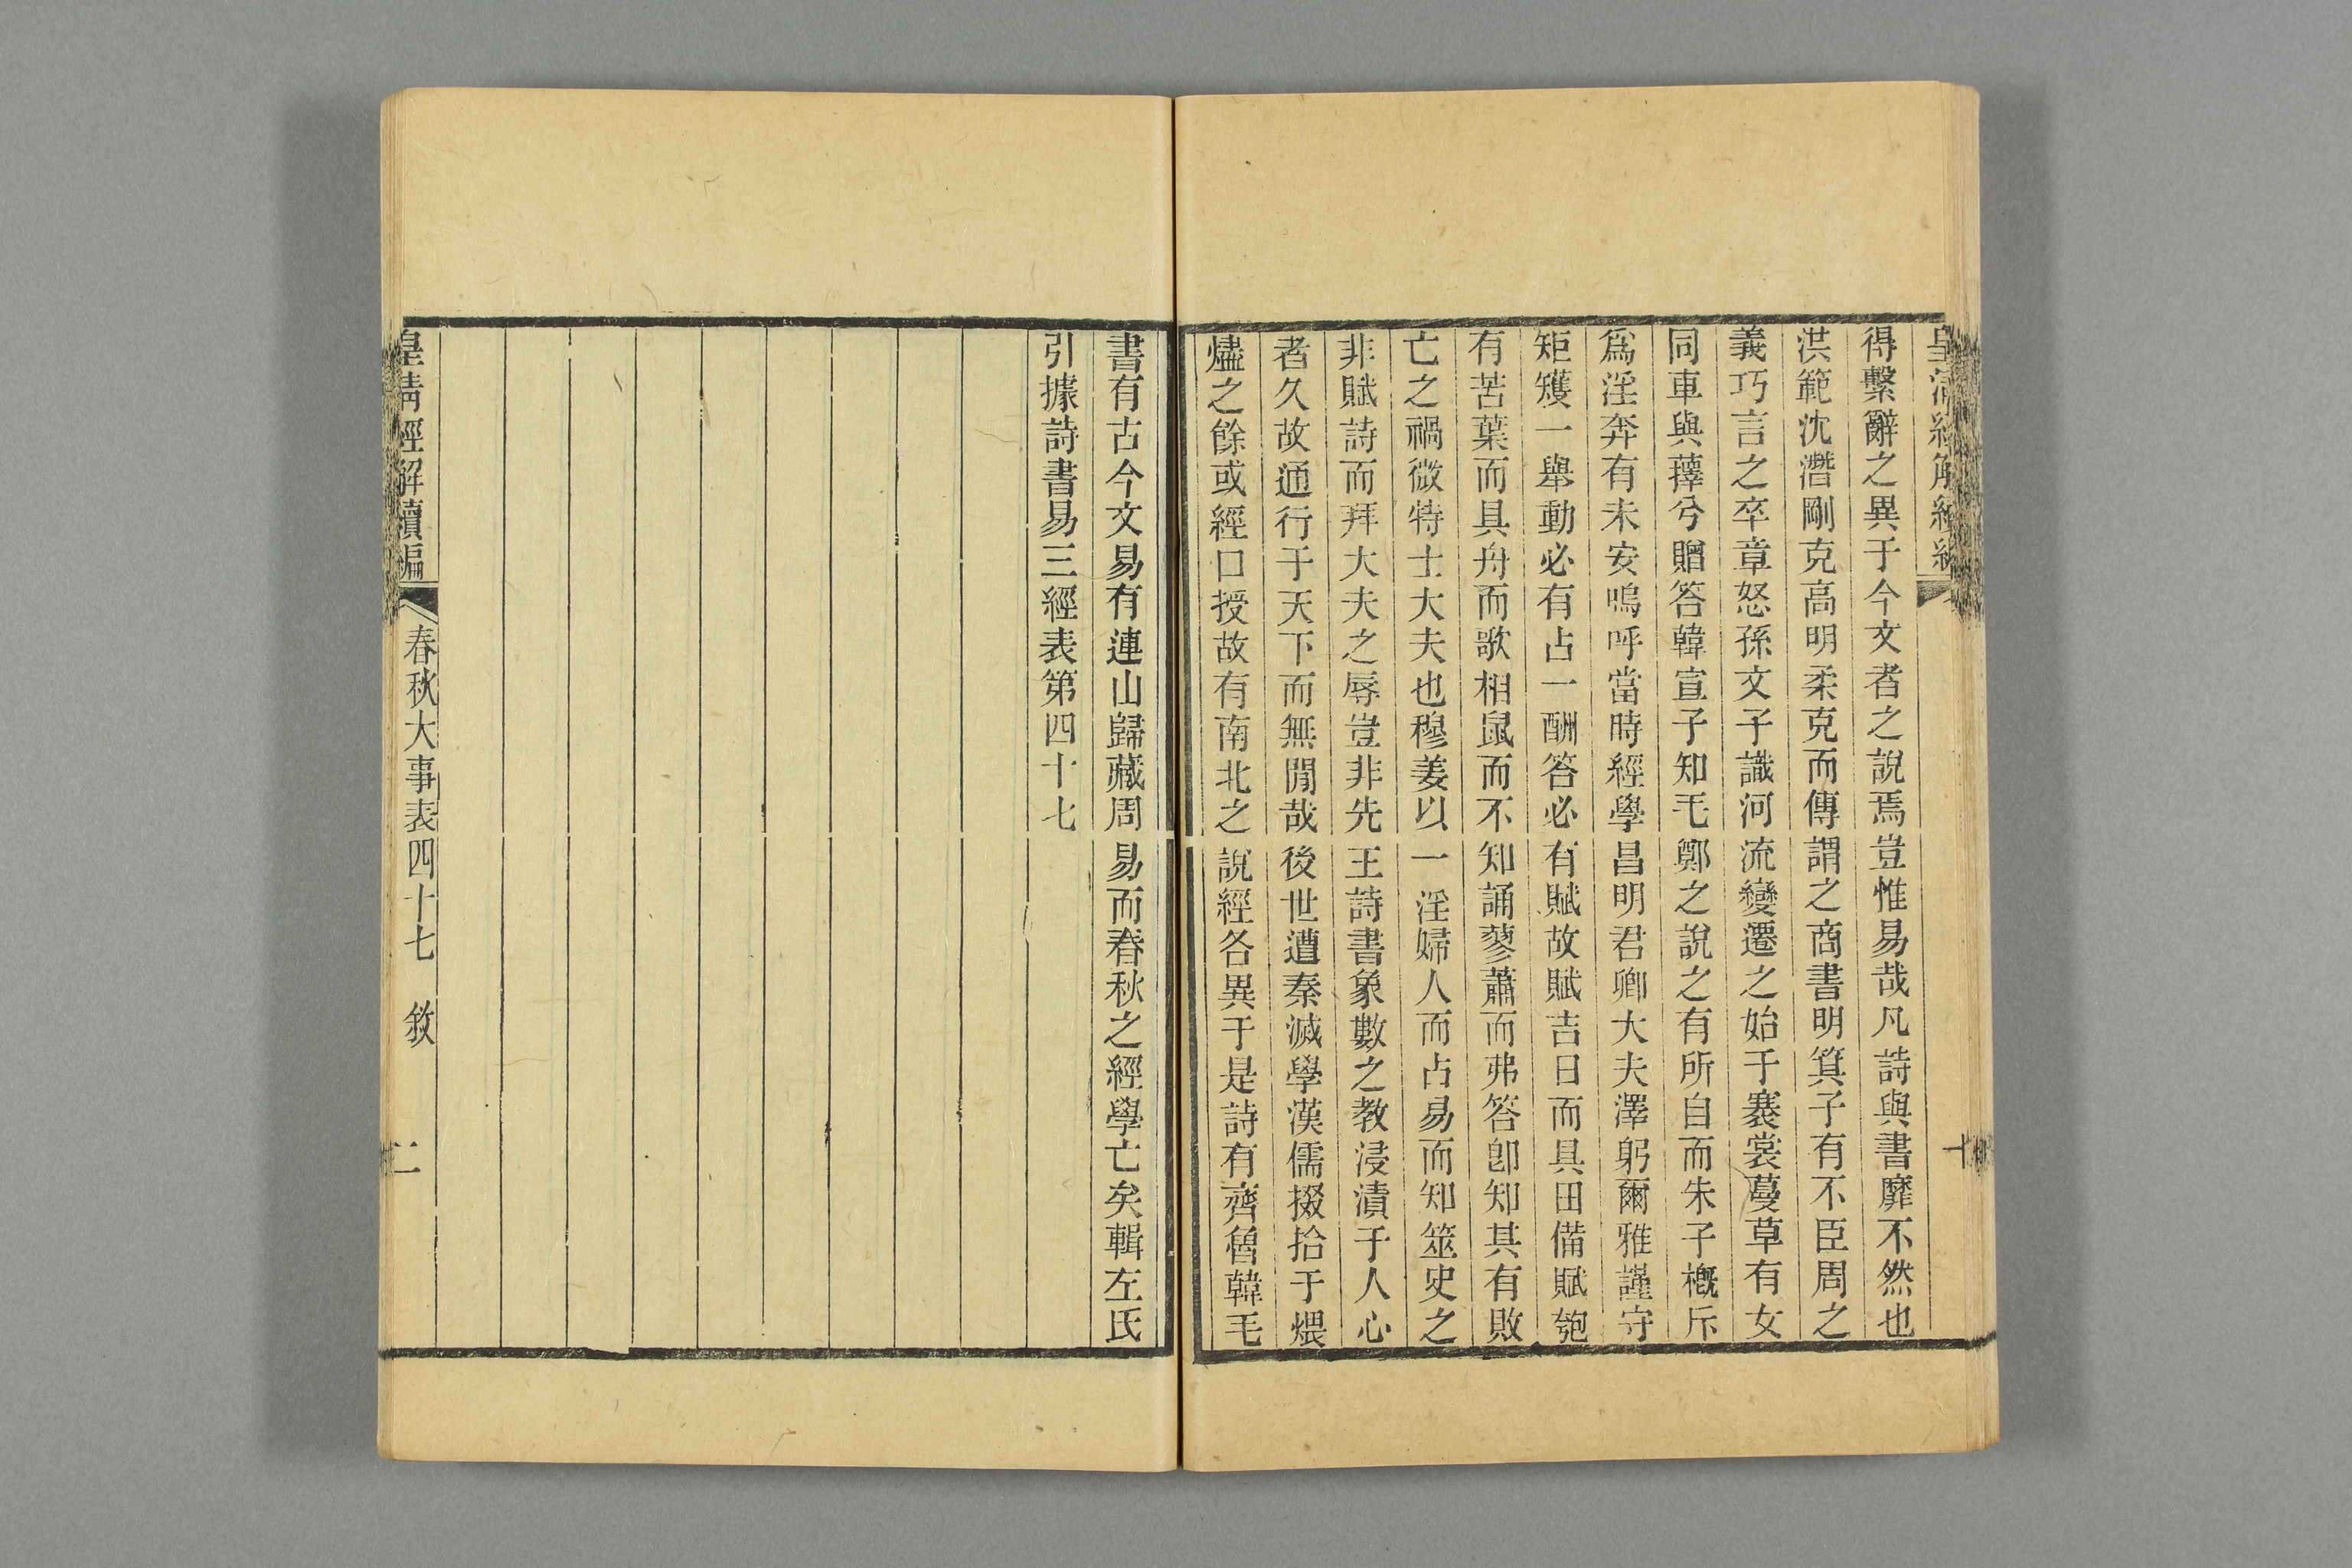 得繫辭之異于今文者之說焉豈惟易哉凡詩與書靡不然也
洪範沈潛剛克高明柔克而傳謂之商書明箕子有不臣周之
義巧言之卒章怒孫文子識河流變遷之始于褰裳蔓草有女
同車與蘀兮贈答韓宣子知毛鄭之說之有所自而朱子槪斥
爲淫奔有未安嗚呼當時經學昌明君卿大夫澤躬爾雅謹守
矩矱一舉動必有占一酬答必有賦故賦吉日而具田備賦匏
有苦葉而具舟而歌相鼠而不知誦蓼蕭而弗答卽知其有敗
亡之禍微特士大夫也穆姜以一淫婦人而占易而知筮史之
非賦詩而拜大夫之辱豈非先王詩書象數之教浸漬于人心
者久故通行于天下而無閒哉後世遭秦滅學漢儒掇拾于煨
燼之餘或經口授故有南北之說經各異于是詩有齊魯韓毛
書有古今文易有連山歸藏周易而春秋之經學亡矣輯左氏
引據詩書易三經表第四十七
皇淸經解續編
春秋大事表四十七 敘
二